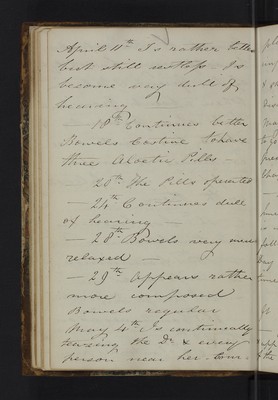 April 11th Is rather better
but still restless Is
become very dull of
hearing
18th Continues better
Bowels Costive to have
three Aloetic Pills
20th The Pills operated
— 24th Continues dull
of hearing —
— 28th Bowels very much
relaxed —
— 29th Appears rather
more composed
Bowels regular
May 4th Is continually
teazing the Dr & every
person near her